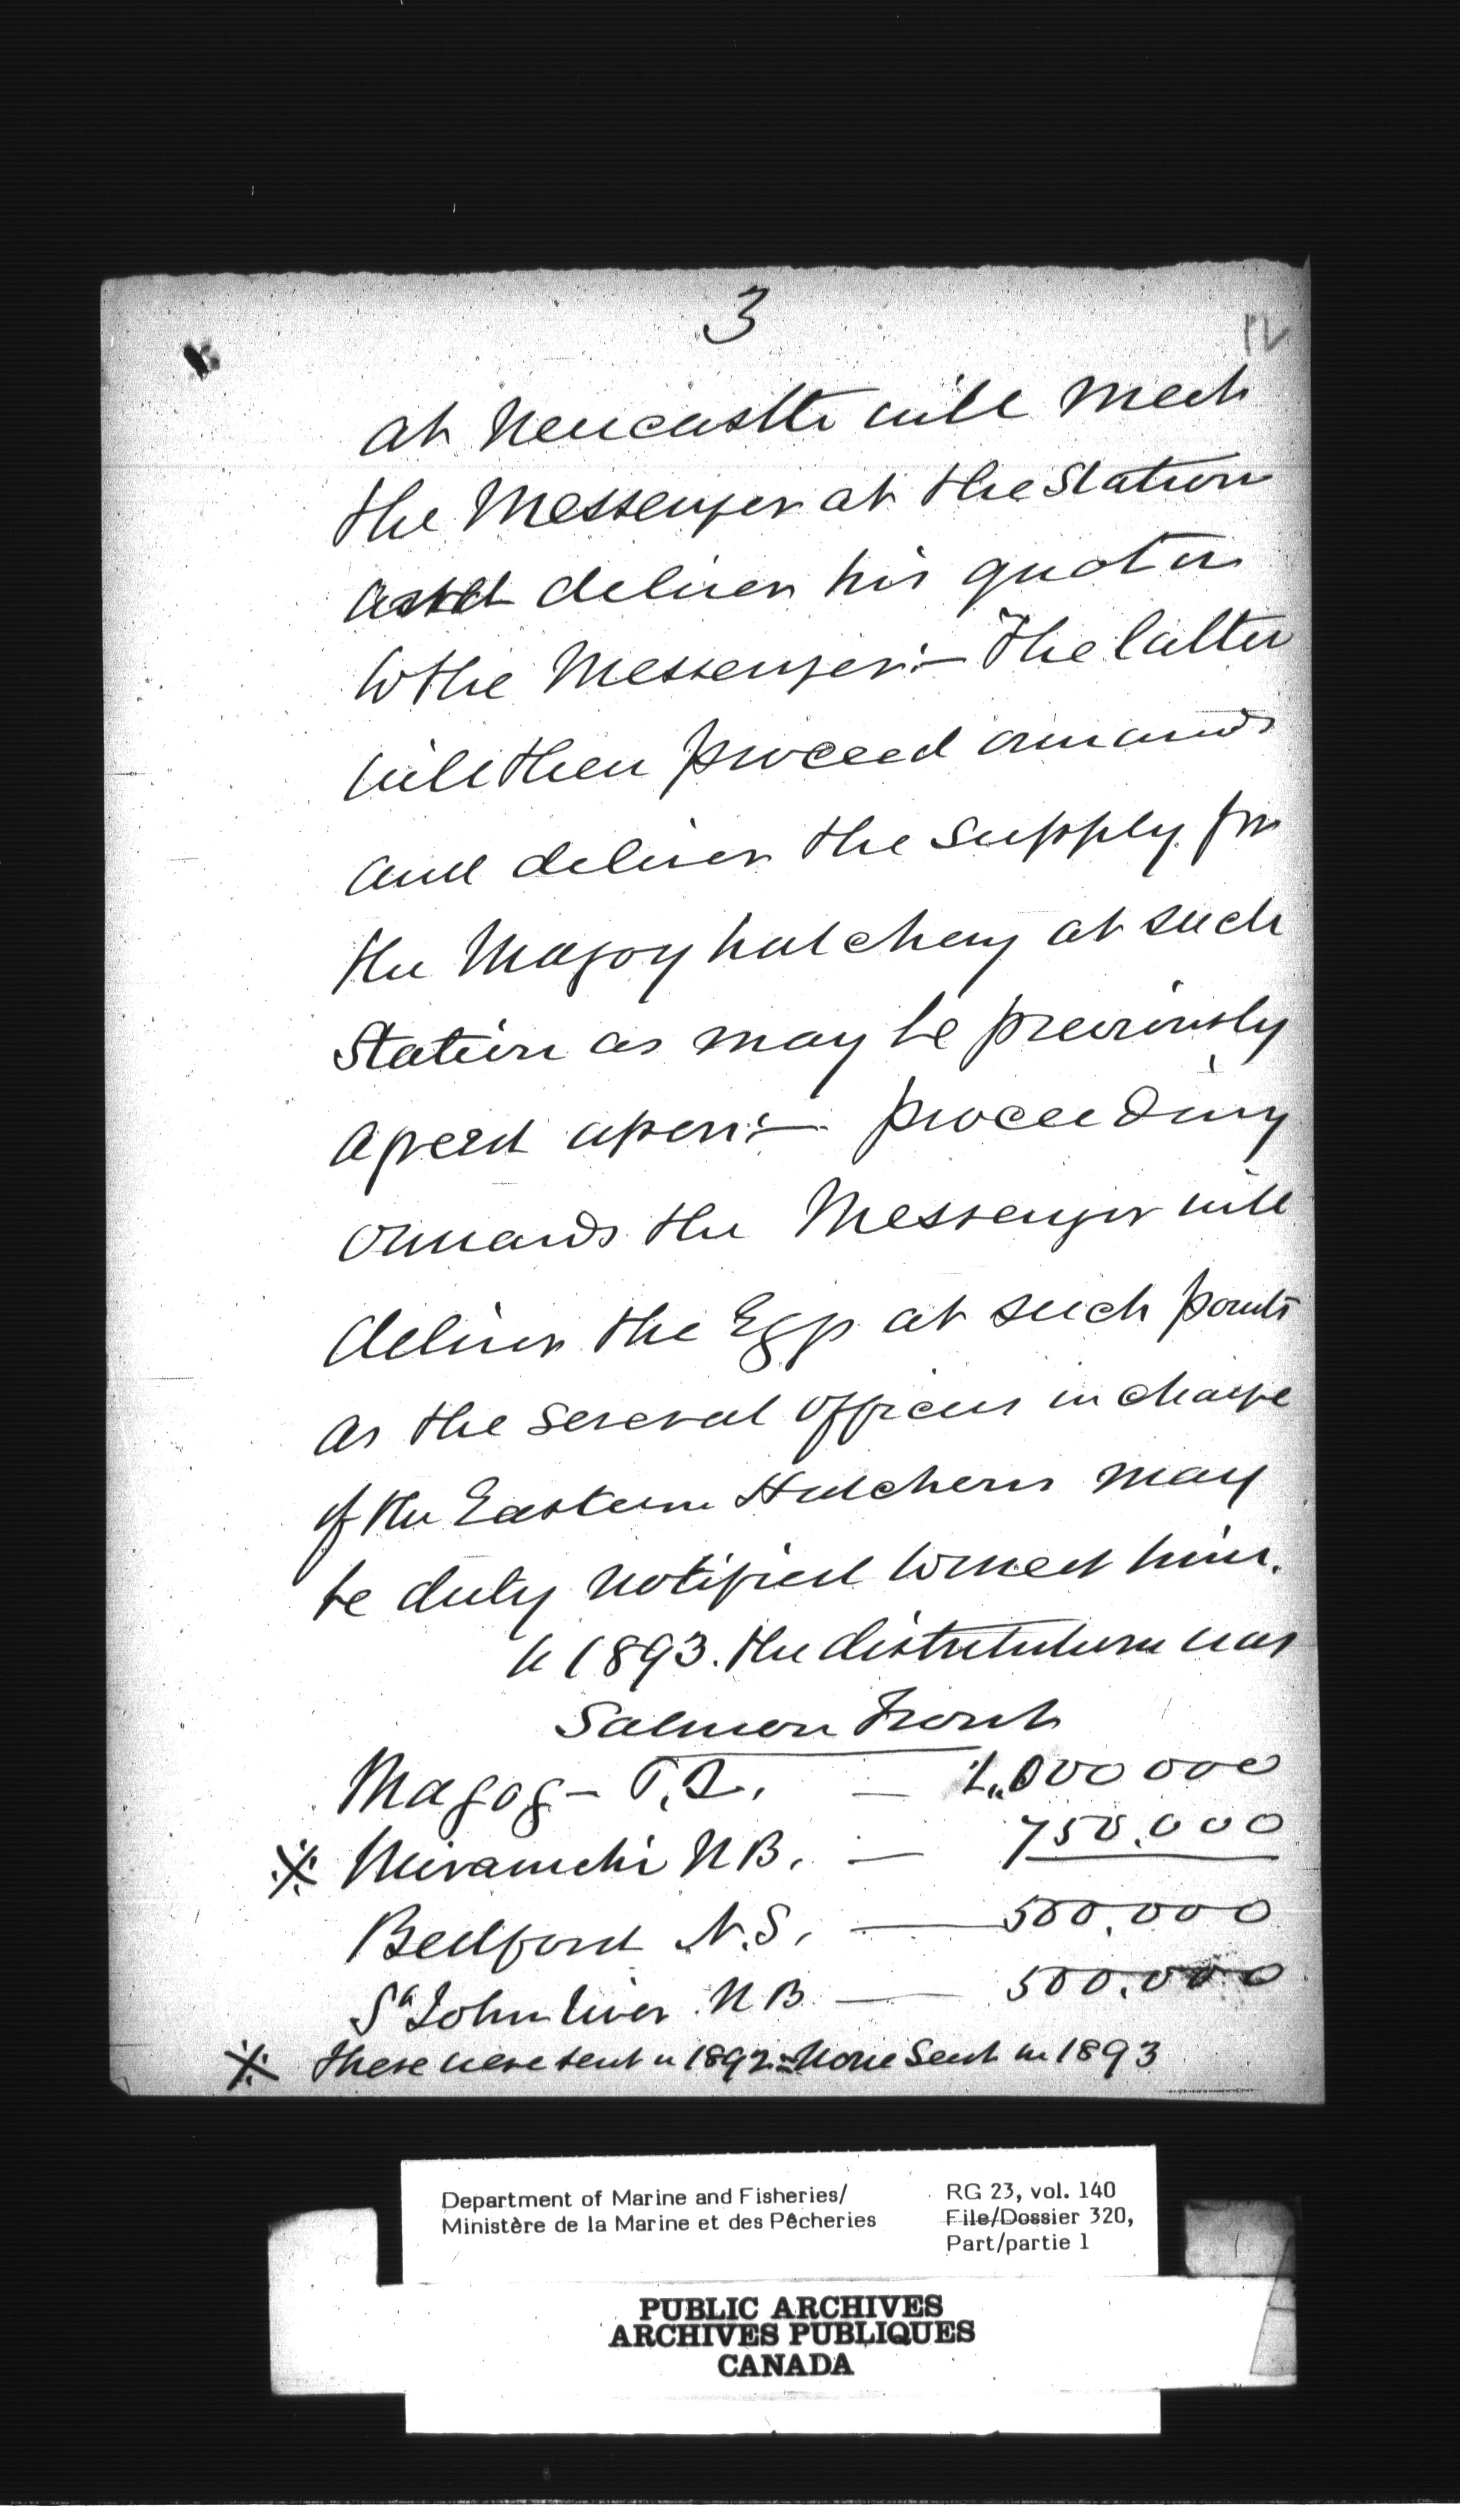 3
12
at Newcastle will meet
the Messenger at the Station
and deliver his quota
to the Messenger:— The latter
will then proceed onwards
and deliver the supply for
the Magog hatchery at such
Station as may be previously
agreed upon:— proceeding
onwards the Messenger will
deliver the Eggs at such points
as the several officers in charge
of the Eastern Hatcheries may
be duly notified to meet him.
In 1893. the distribution was
Salmon Trout
Magog — P.Q. — 1,000 000
※ Miramichi N B. — 750.000
Bedford N.S. — 500.000
St John River N B — 500.000
※ These were sent in 1892 = None Sent in 1893
Department of Marine and Fisheries/
Ministère de la Marine et des Pêcheries
RG 23, vol. 140
File/Dossier 320,
Part/partie 1
PUBLIC ARCHIVES
ARCHIVES PUBLIQUES
CANADA